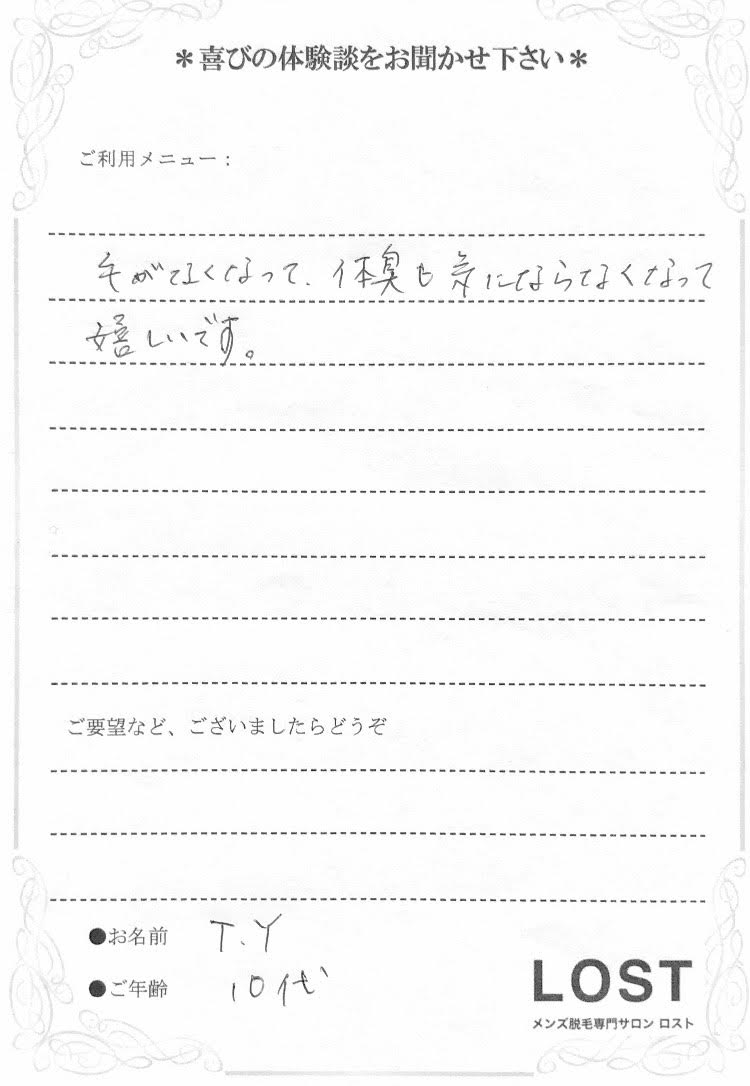 ＊喜びの体験談をお聞かせ下さい＊
ご利用メニュー：
毛がなくなって、体臭も気にならなくなって
嬉しいです。
ご要望など、ございましたらどうぞ
●お名前 T.Y
●ご年齢 10代
LOST
メンズ脱毛専門サロン ロスト